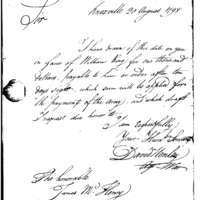 Knoxville 20 August 1798
Sir
I have drawn of this date on you
in favor of William King for one thousand
dollars, payable to him or order after ten
days sight, which sum will be applied for
the payment of the army, and which draft
I request due honor to. I am respectfully
Your Humb Servant
David Henley
The honorable
James McHenry